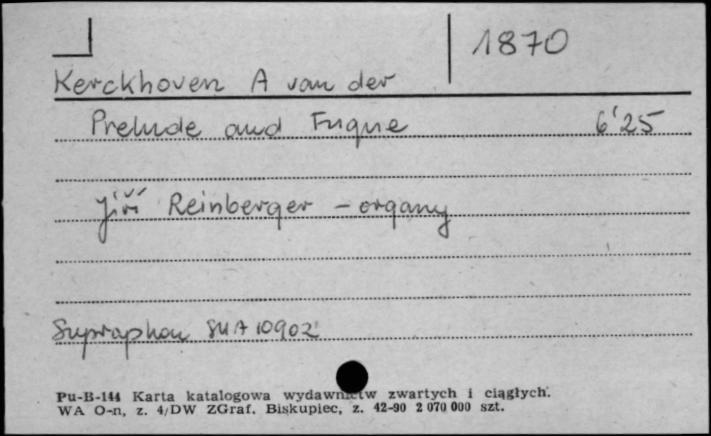 1870
Kerckhoven A van der
Prelude and Fugue 6'25
Jiří Reinberger - organy
Supraphon SUA 10902
Pu-B-144 Karta katalogowa wydawnictw zwartych i ciągłych.
WA O-n, z. 4/DW ZGraf. Biskupiec, z. 42-90 2 070 000 szt.